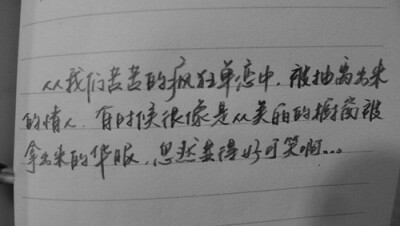 从我们苦苦的疯狂单恋中，被抽离出来
的情人．有时候很像是从美丽的橱窗被
拿出来的华服，忽然丑得好可笑啊...